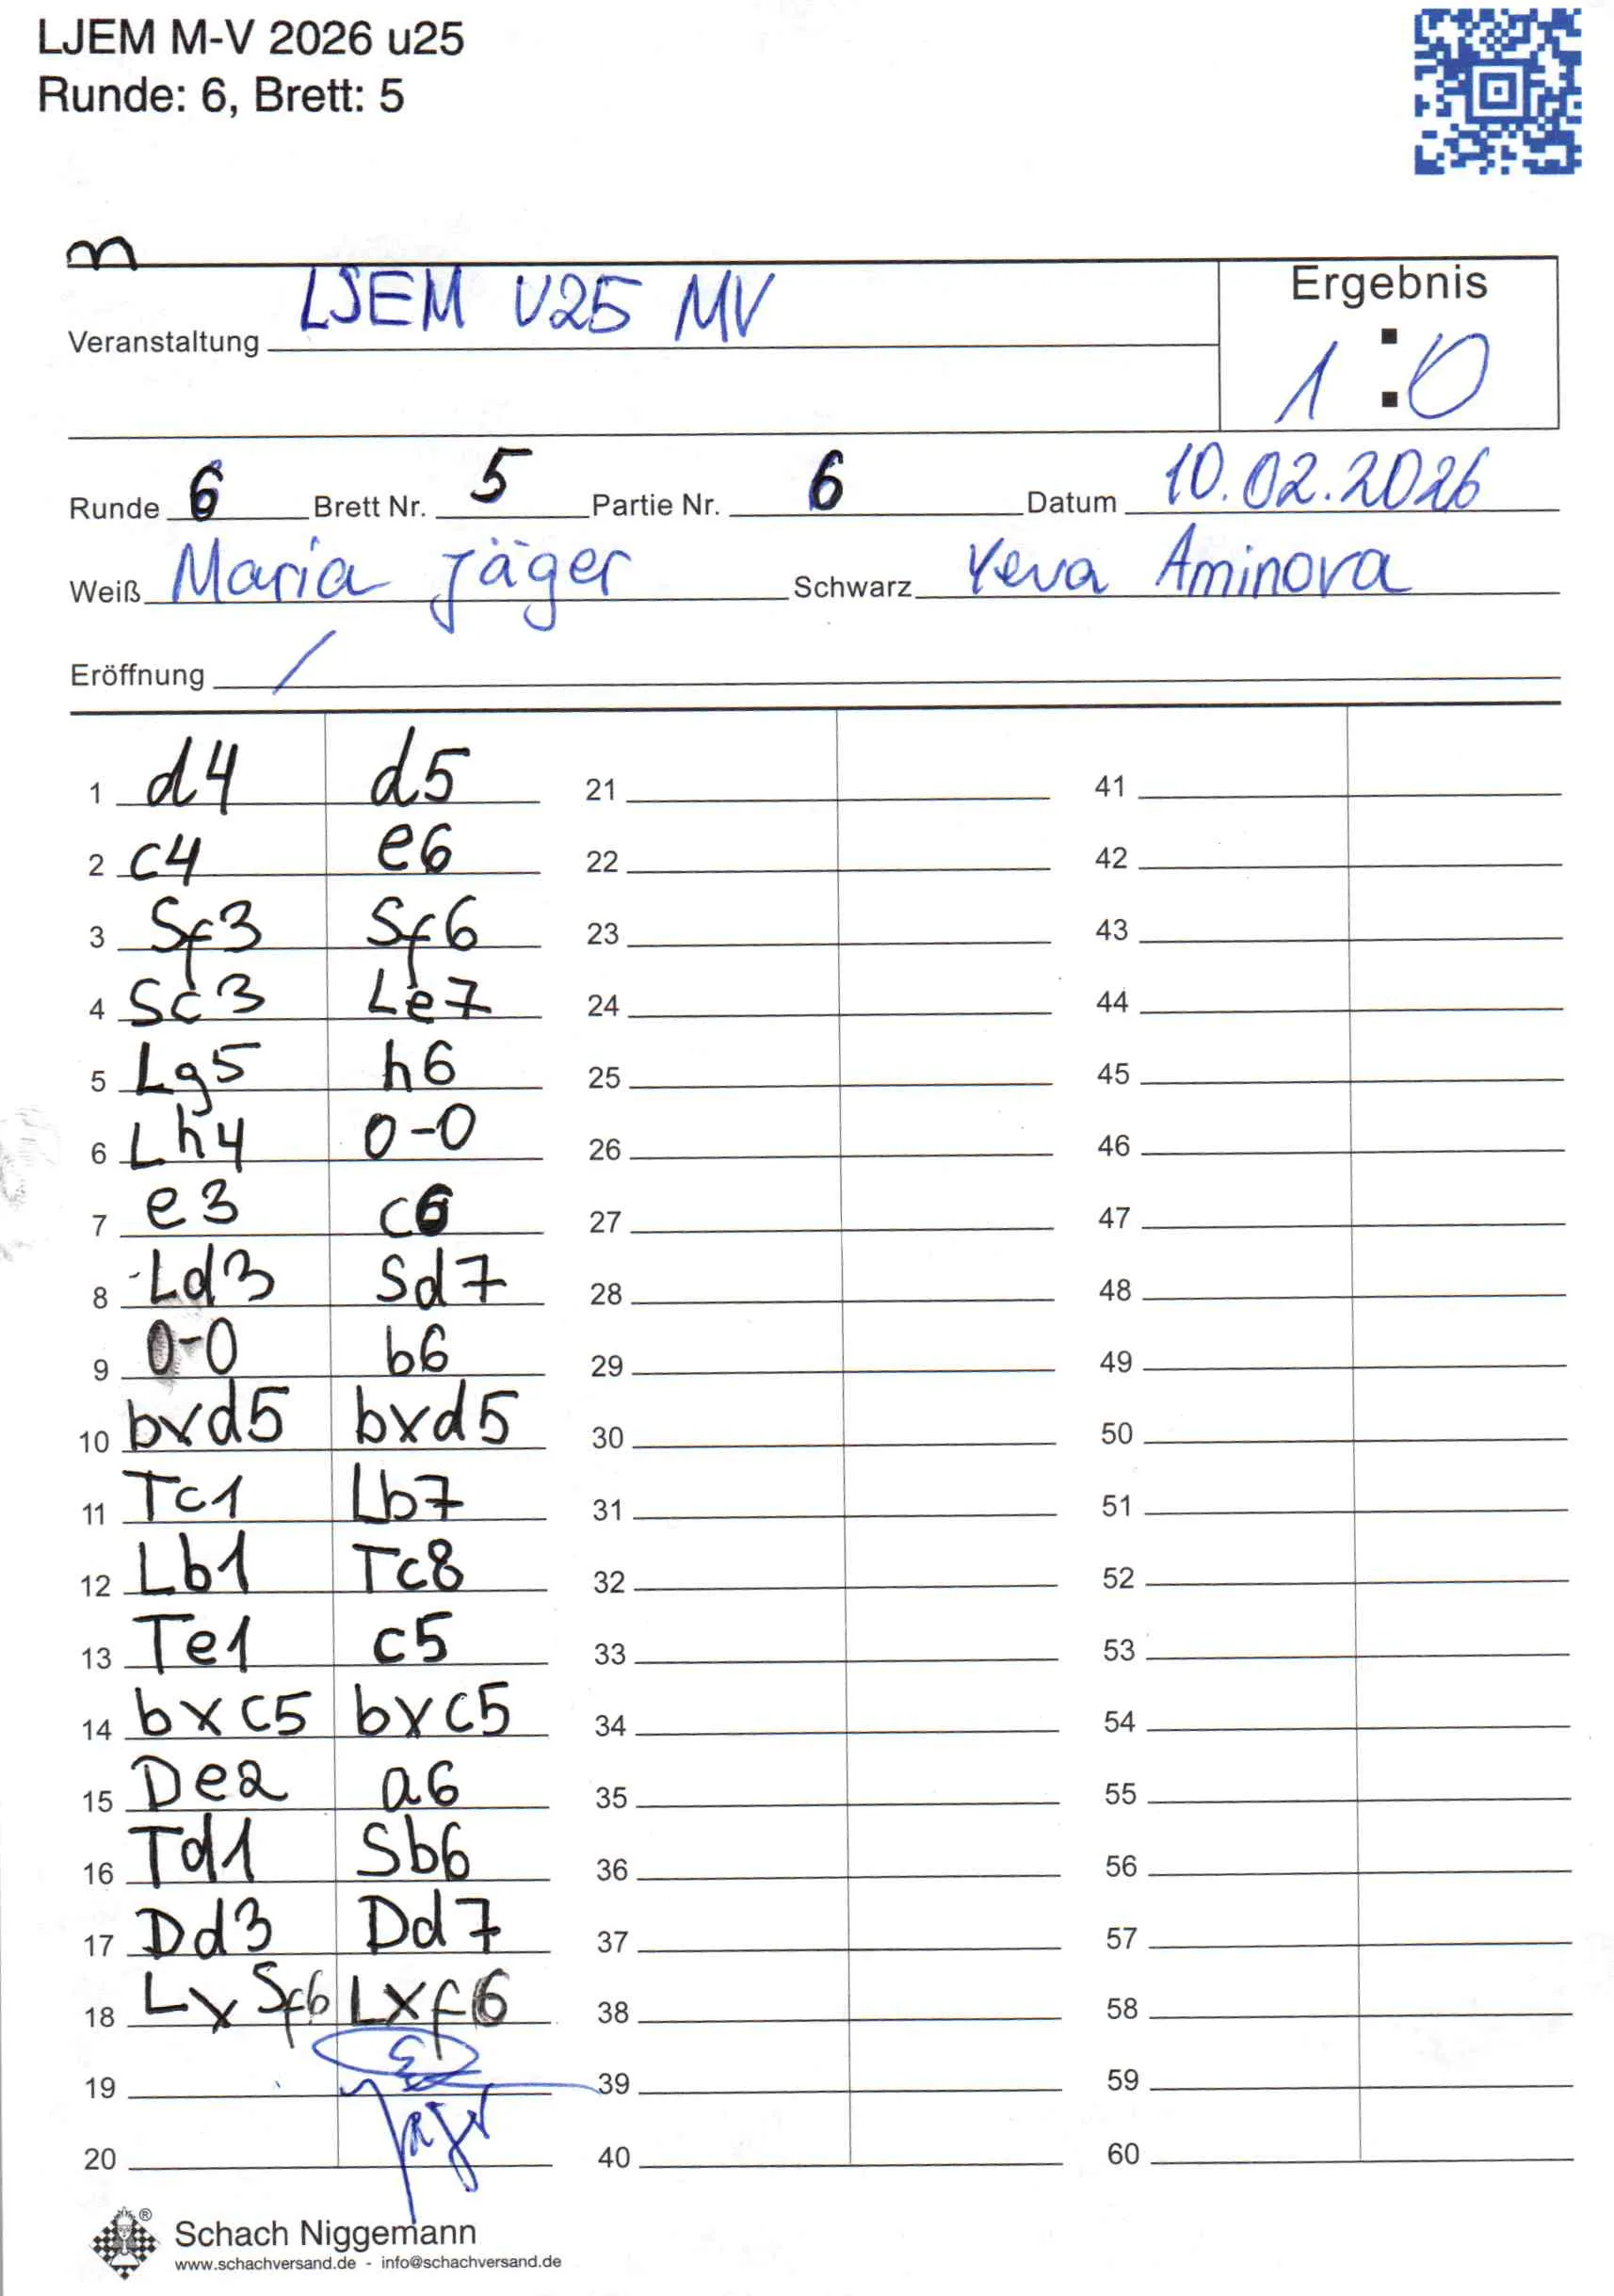 LJEM M-V 2026 u25
Runde: 6, Brett: 5
Ergebnis
Veranstaltung LJEM U25 MV
1 : 0
Runde 6 Brett Nr. 5 Partie Nr. 6 Datum 10.02.2026
Weiß Maria Jäger Schwarz Yeva Aminova
Eröffnung /
1 d4 d5 21 41
2 c4 e6 22 42
3 Sf3 Sf6 23 43
4 Sc3 Le7 24 44
5 Lg5 h6 25 45
6 Lh4 0-0 26 46
7 e3 c6 27 47
8 Ld3 Sd7 28 48
9 0-0 b6 29 49
10 bxd5 bxd5 30 50
11 Tc1 Lb7 31 51
12 Lb1 Tc8 32 52
13 Te1 c5 33 53
14 bxc5 bxc5 34 54
15 De2 a6 35 55
16 Td1 Sb6 36 56
17 Dd3 Dd7 37 57
18 LxSf6 Lxf6 38 58
19 39 59
20 Jäger 40 60
® Schach Niggemann
www.schachversand.de - info@schachversand.de